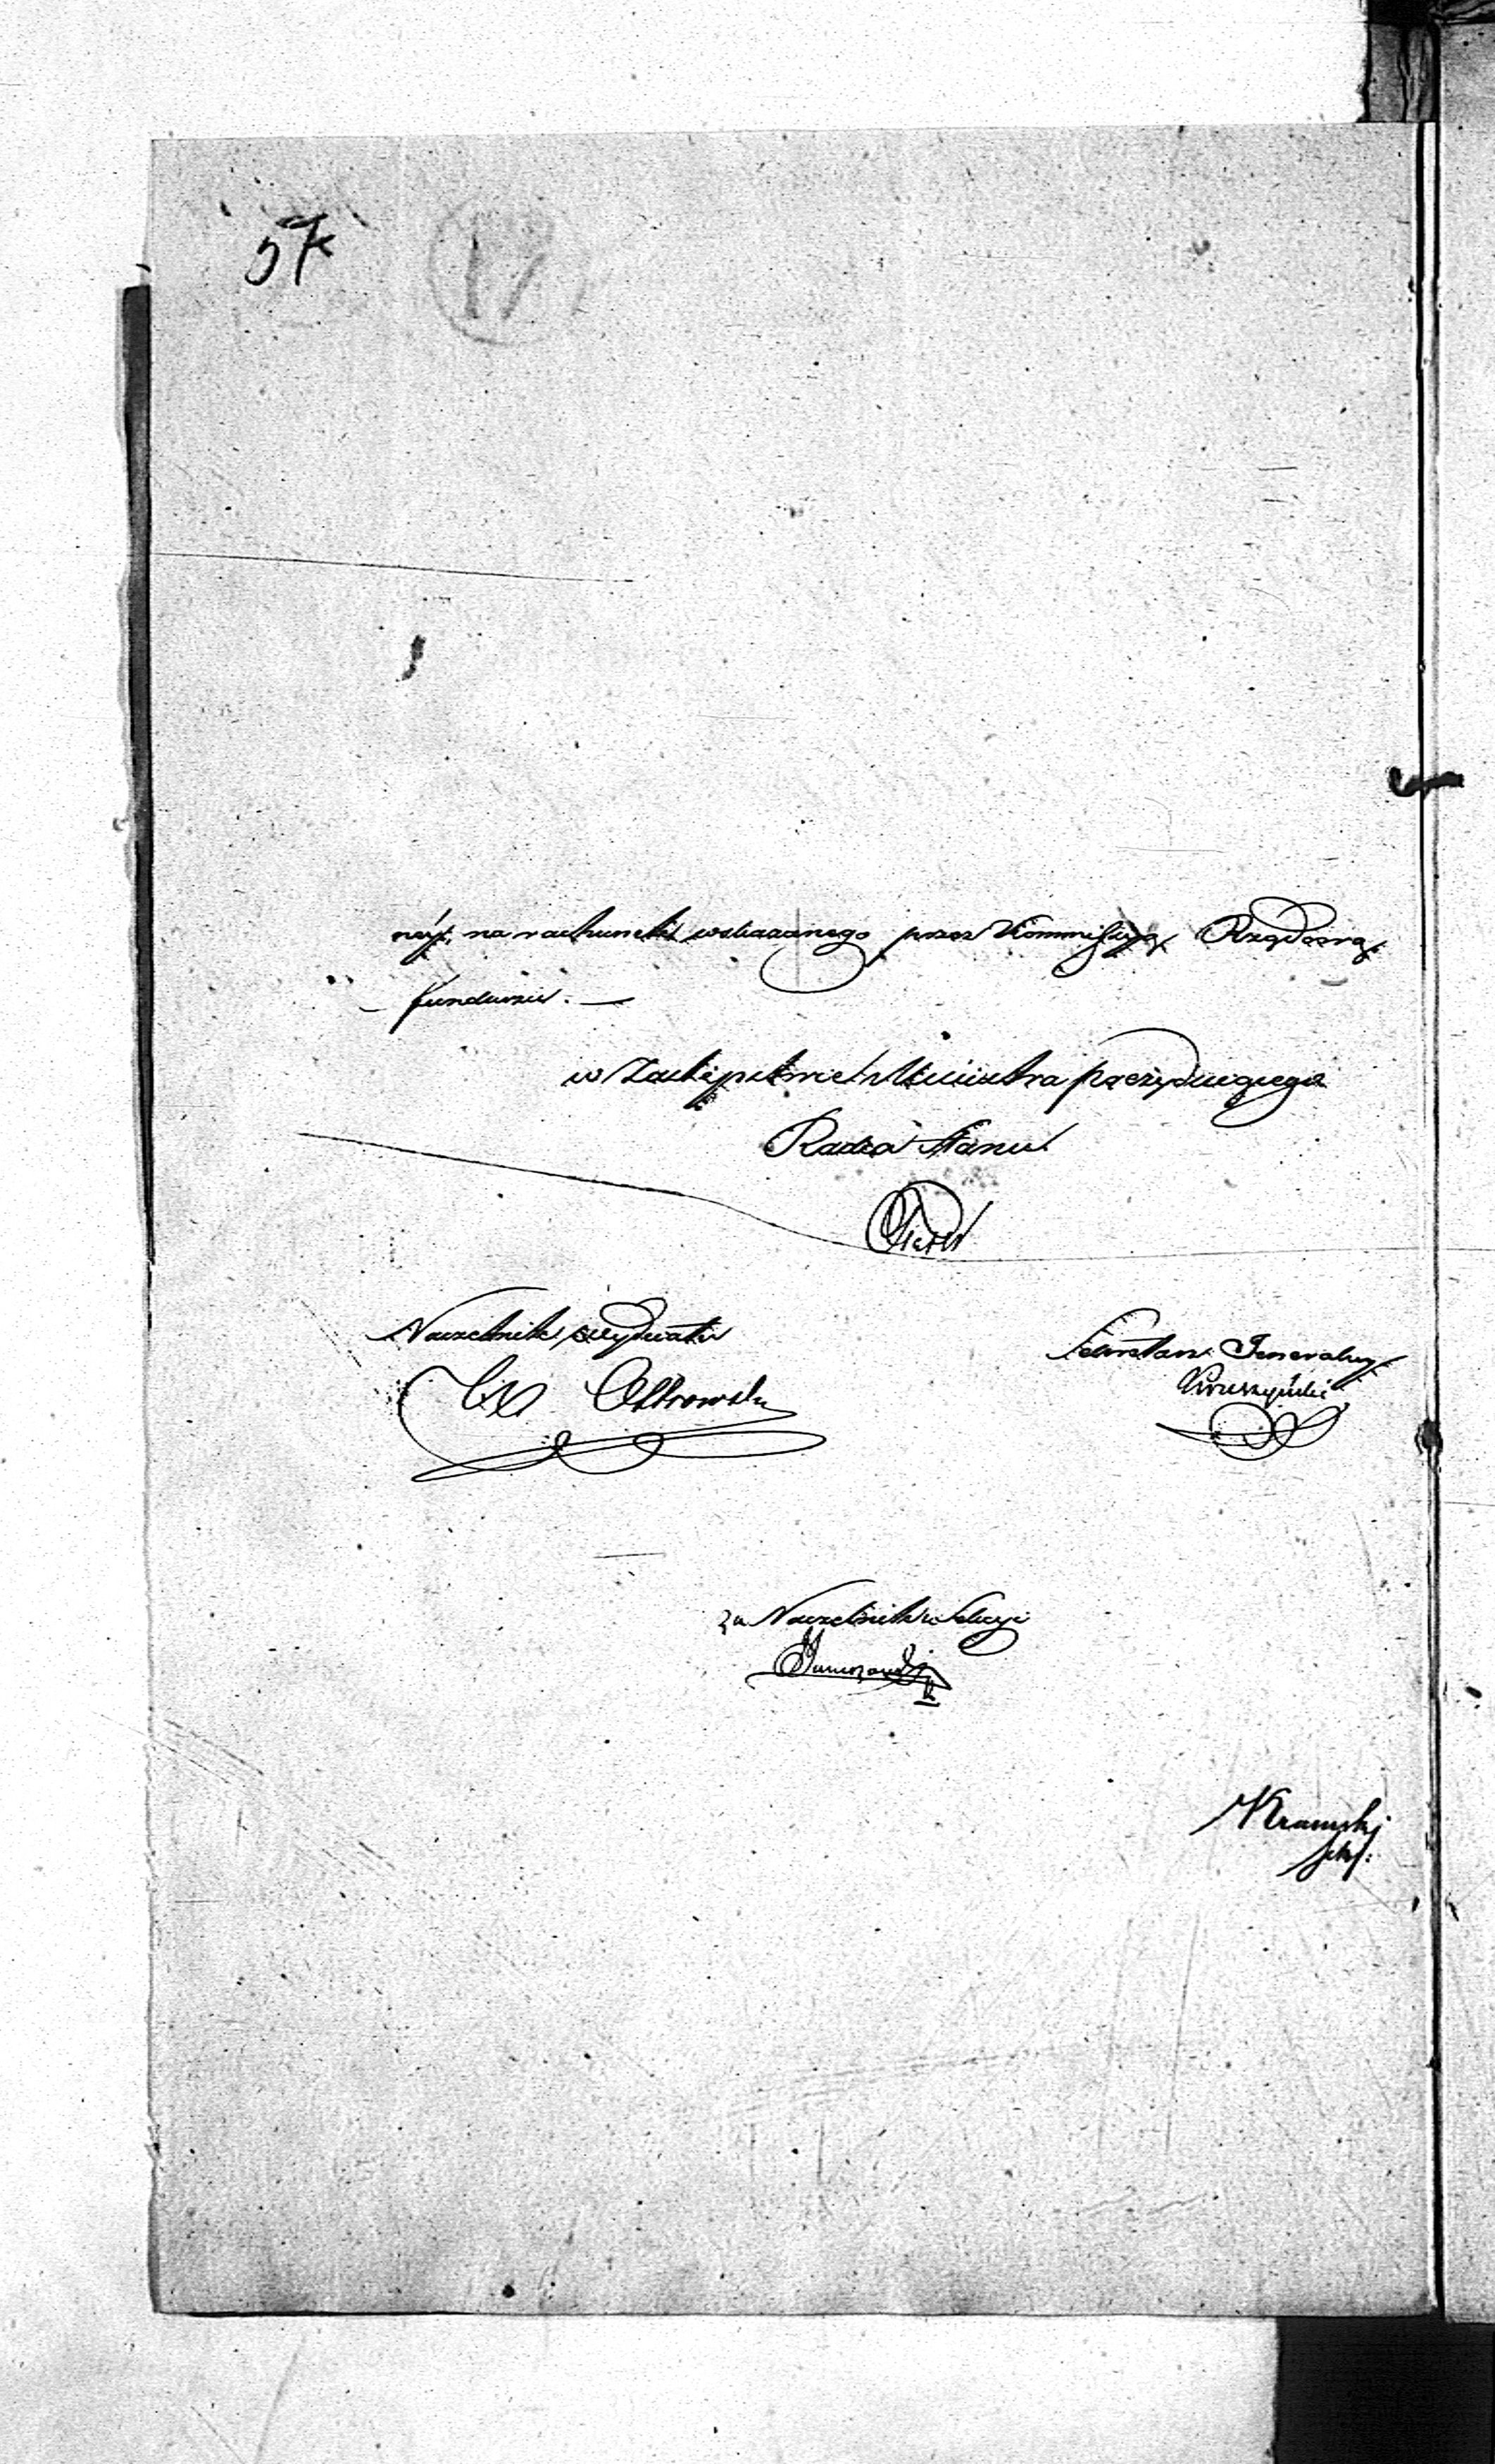 57
17
néy, na rachunek wskazanego przez Kommissyą Rządową
funduszu. —
w Zastępstwie Ministra Prezydującego
Radca Stanu
Naczelnik Wydziału
Ostrowski
Sekretarz Jeneralny
Kruszyński
za Naczelnika Sekcyi